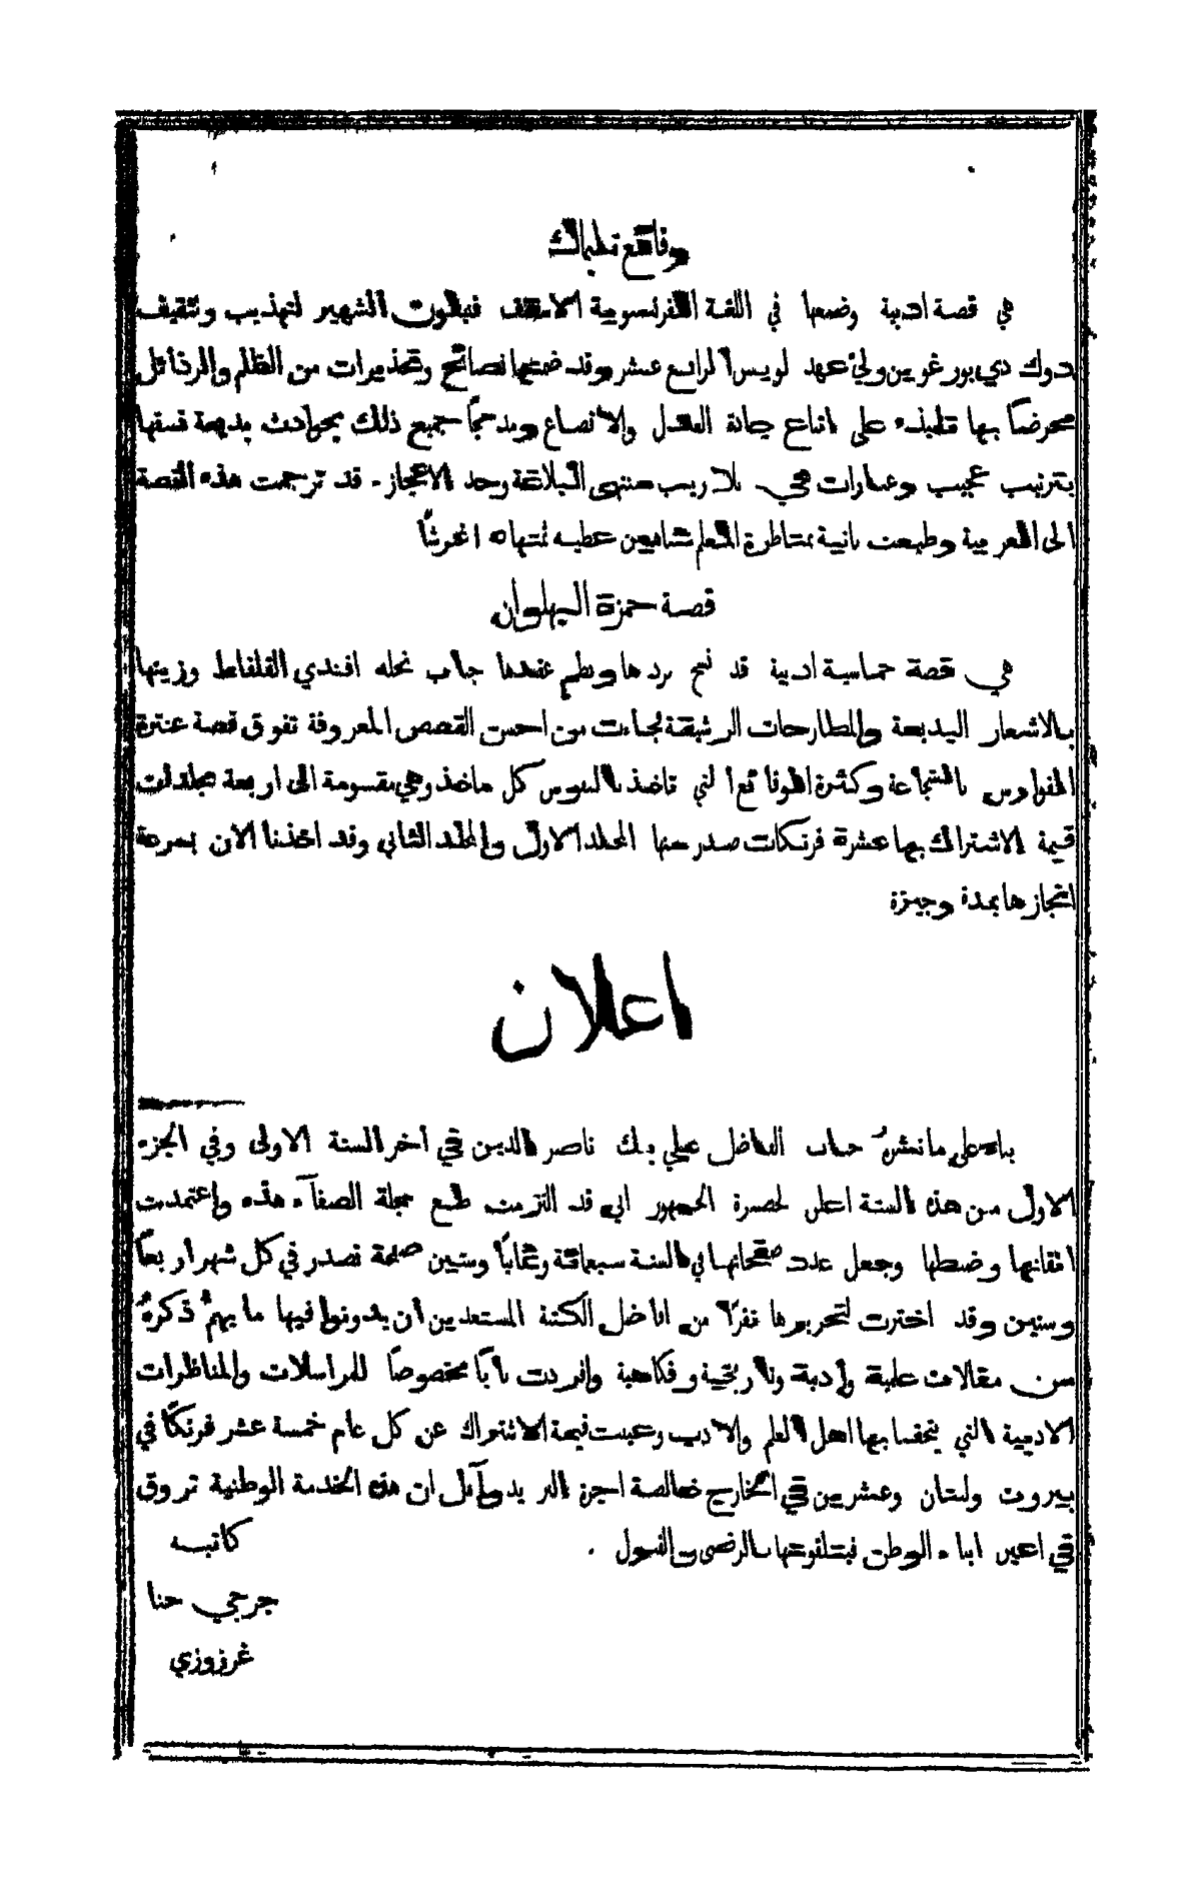 وقائع تليماك
هي قصة ادبية وضعها في اللغة الفرنسوية الاسقف فنيلون الشهير لتهذيب وتثقيف
دوك دي بورغوين ولي عهد لويس الرابع عشر وقد ضمنها نصائح وتحذيرات من الظلم والرذائل
محرضًا بها تلميذه على اتباع جادة العدل والانصاع ومدمجًا جميع ذلك بحوادث بديعة نسقها
بترتيب عجيب وعبارات هي بلا ريب منتهى البلاغة وحد الاعجاز. قد ترجمت هذه القصة
الى العربية وطبعت ثانية بمناظرة المعلم شاهين عطيه ثمنها ٥ اغرشًا
قصة حمزة البهلوان
هي قصة حماسية ادبية قد نسج بردها ونظم عقدها جناب نخله افندي القلفاط وزينها
بالاشعار البديعة والمطارحات الرشيقة فجاءت من احسن القصص المعروفة تفوق قصة عنترة
الفوارس بالشجاعة وكثرة الوقائع التي تاخذ بالنفوس كل ماخذ وهي مقسومة الى اربعة مجلدات
قيمة الاشتراك بها عشرة فرنكات صدر منها المجلد الاول والمجلد الثاني وقد اخذنا الان بسرعة
انجازها بمدة وجيزة
اعلان
بناء على ما نشرهُ جناب الفاضل علي بك ناصر الدين في اخر السنة الاولى وفي الجزء
الاول من هذه السنة اعلن لحضرة الجمهور اني قد التزمت طبع مجلة الصفآء هذه واعتمدت
اتقانها وضبطها وجعل عدد صفحاتها في السنة سبعمائة وثمانيًا وستين صفحة تصدر في كل شهر اربعًا
وستين وقد اخترت لتحريرها نفرًا من افاضل الكتبة المستعدين ان يدونوا فيها ما يهمُّ ذكرهُ
من مقالات علمية وادبية وتاريخية وفكاهية وافردت بابًا مخصوصًا للمراسلات والمناظرات
الادبية التي يتحفنا بها اهل العلم والادب وعينت قيمة الاشتراك عن كل عام خمسة عشر فرنكًا في
بيروت ولبنان وعشرين في الخارج خالصة اجرة البريد وآمل ان هذه الخدمة الوطنية تروق
في اعين ابناء الوطن فيتلقونها بالرضى والقبول .
كاتبه
جرجي حنا
غرزوزي